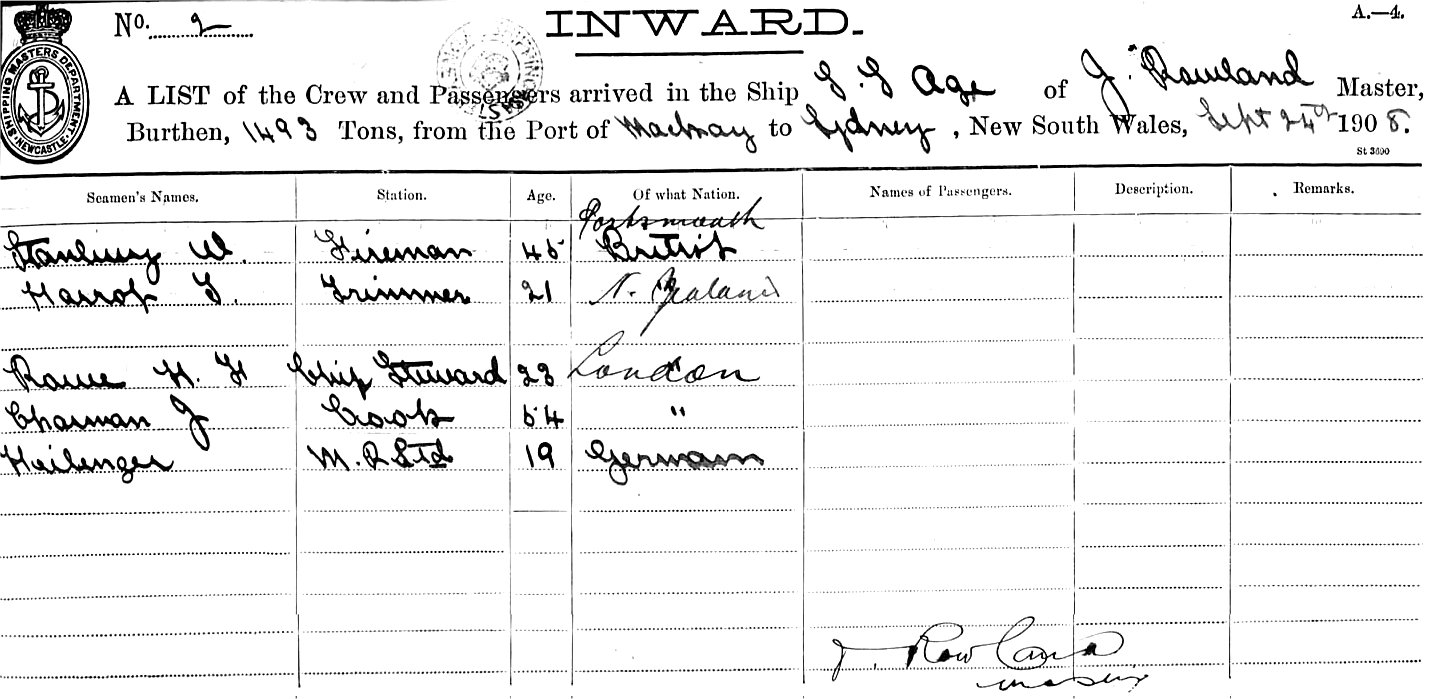 No. 2
INWARD.
A.—4.
SHIPPING MASTERS DEPARTMENT. NEWCASTLE.
A LIST of the Crew and Passengers arrived in the Ship S.S Age of J. Rowland Master,
Burthen, 1493 Tons, from the Port of Mackay to Sydney, New South Wales, Sept 24th 1908.
St 3690
Seamen's Names. Station. Age. Of what Nation. Names of Passengers. Description. Remarks.
Portsmouth
Stanbury W. Fireman 45 British
Harrop T. Trimmer 21 N. Zealand
Rowe H. H Chief Steward 23 London
Charman J Cook 54 "
Heilenger M.R Std 19 German
J. Rowland
Master